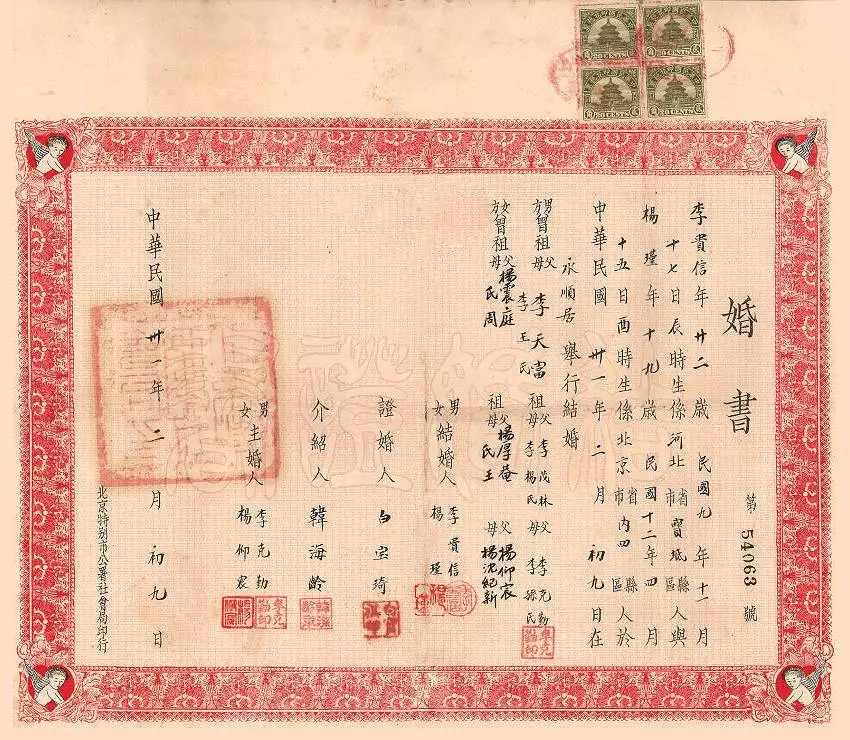 婚書
第 54063 號
李貴信年廿二歲民國九年十一月
十七日辰時生係河北省市寶坻縣區人與
楊瑾年十九歲民國十二年四月
十五日酉時生係北京省市內四縣區人於
中華民國卅一年二月初九日在
永順居舉行結婚
男方曾祖父李天富 祖父李茂林 父李克勤
母李王氏 母李楊氏 母李孫氏
女方曾祖父楊震庭 祖父楊厚菴 父楊仰宸
母氏周 母氏王 母楊沈紀新
男結婚人李貴信
女楊瑾
證婚人白寶琦
介紹人韓海齡
男主婚人李克勤
女楊仰宸
中華民國卅一年二月初九日
北京特別市公署社會局印行
20 CENTS
20 CENTS
20 CENTS
20 CENTS
李克勤印
李克勤印